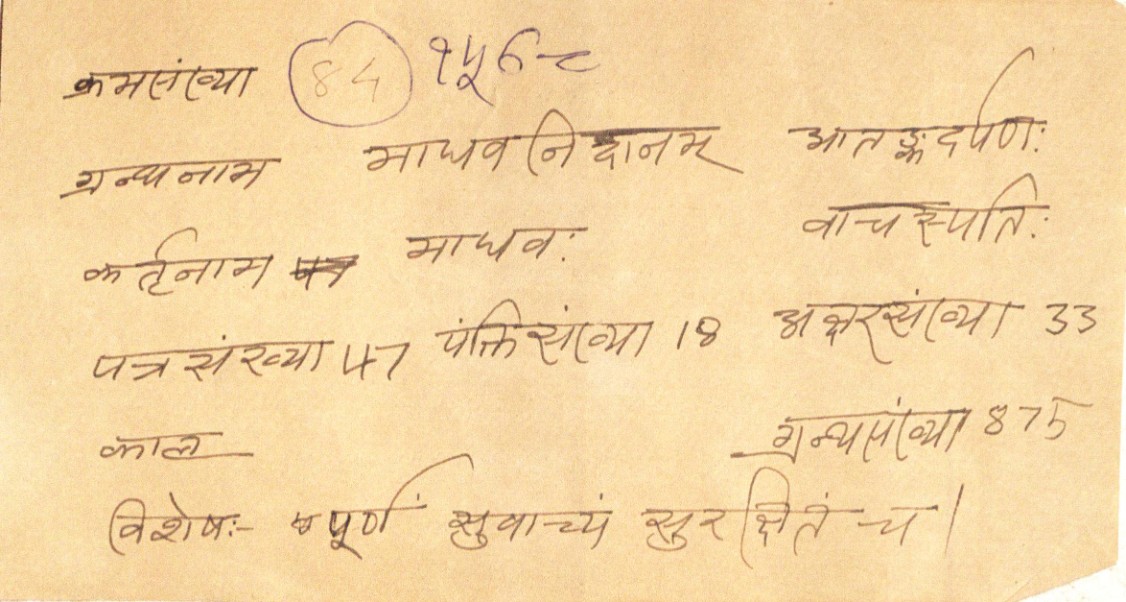 क्रमसंख्या 84 १५६८
ग्रन्थनाम माधवनिदानम् आतङ्कदर्पणः
कर्तृनाम माधवः वाचस्पतिः
पत्रसंख्या 47 पंक्तिसंख्या 18 अक्षरसंख्या 33
काल ग्रन्थसंख्या 875
विशेषः- पूर्णं सुवाच्यं सुरक्षितं च।